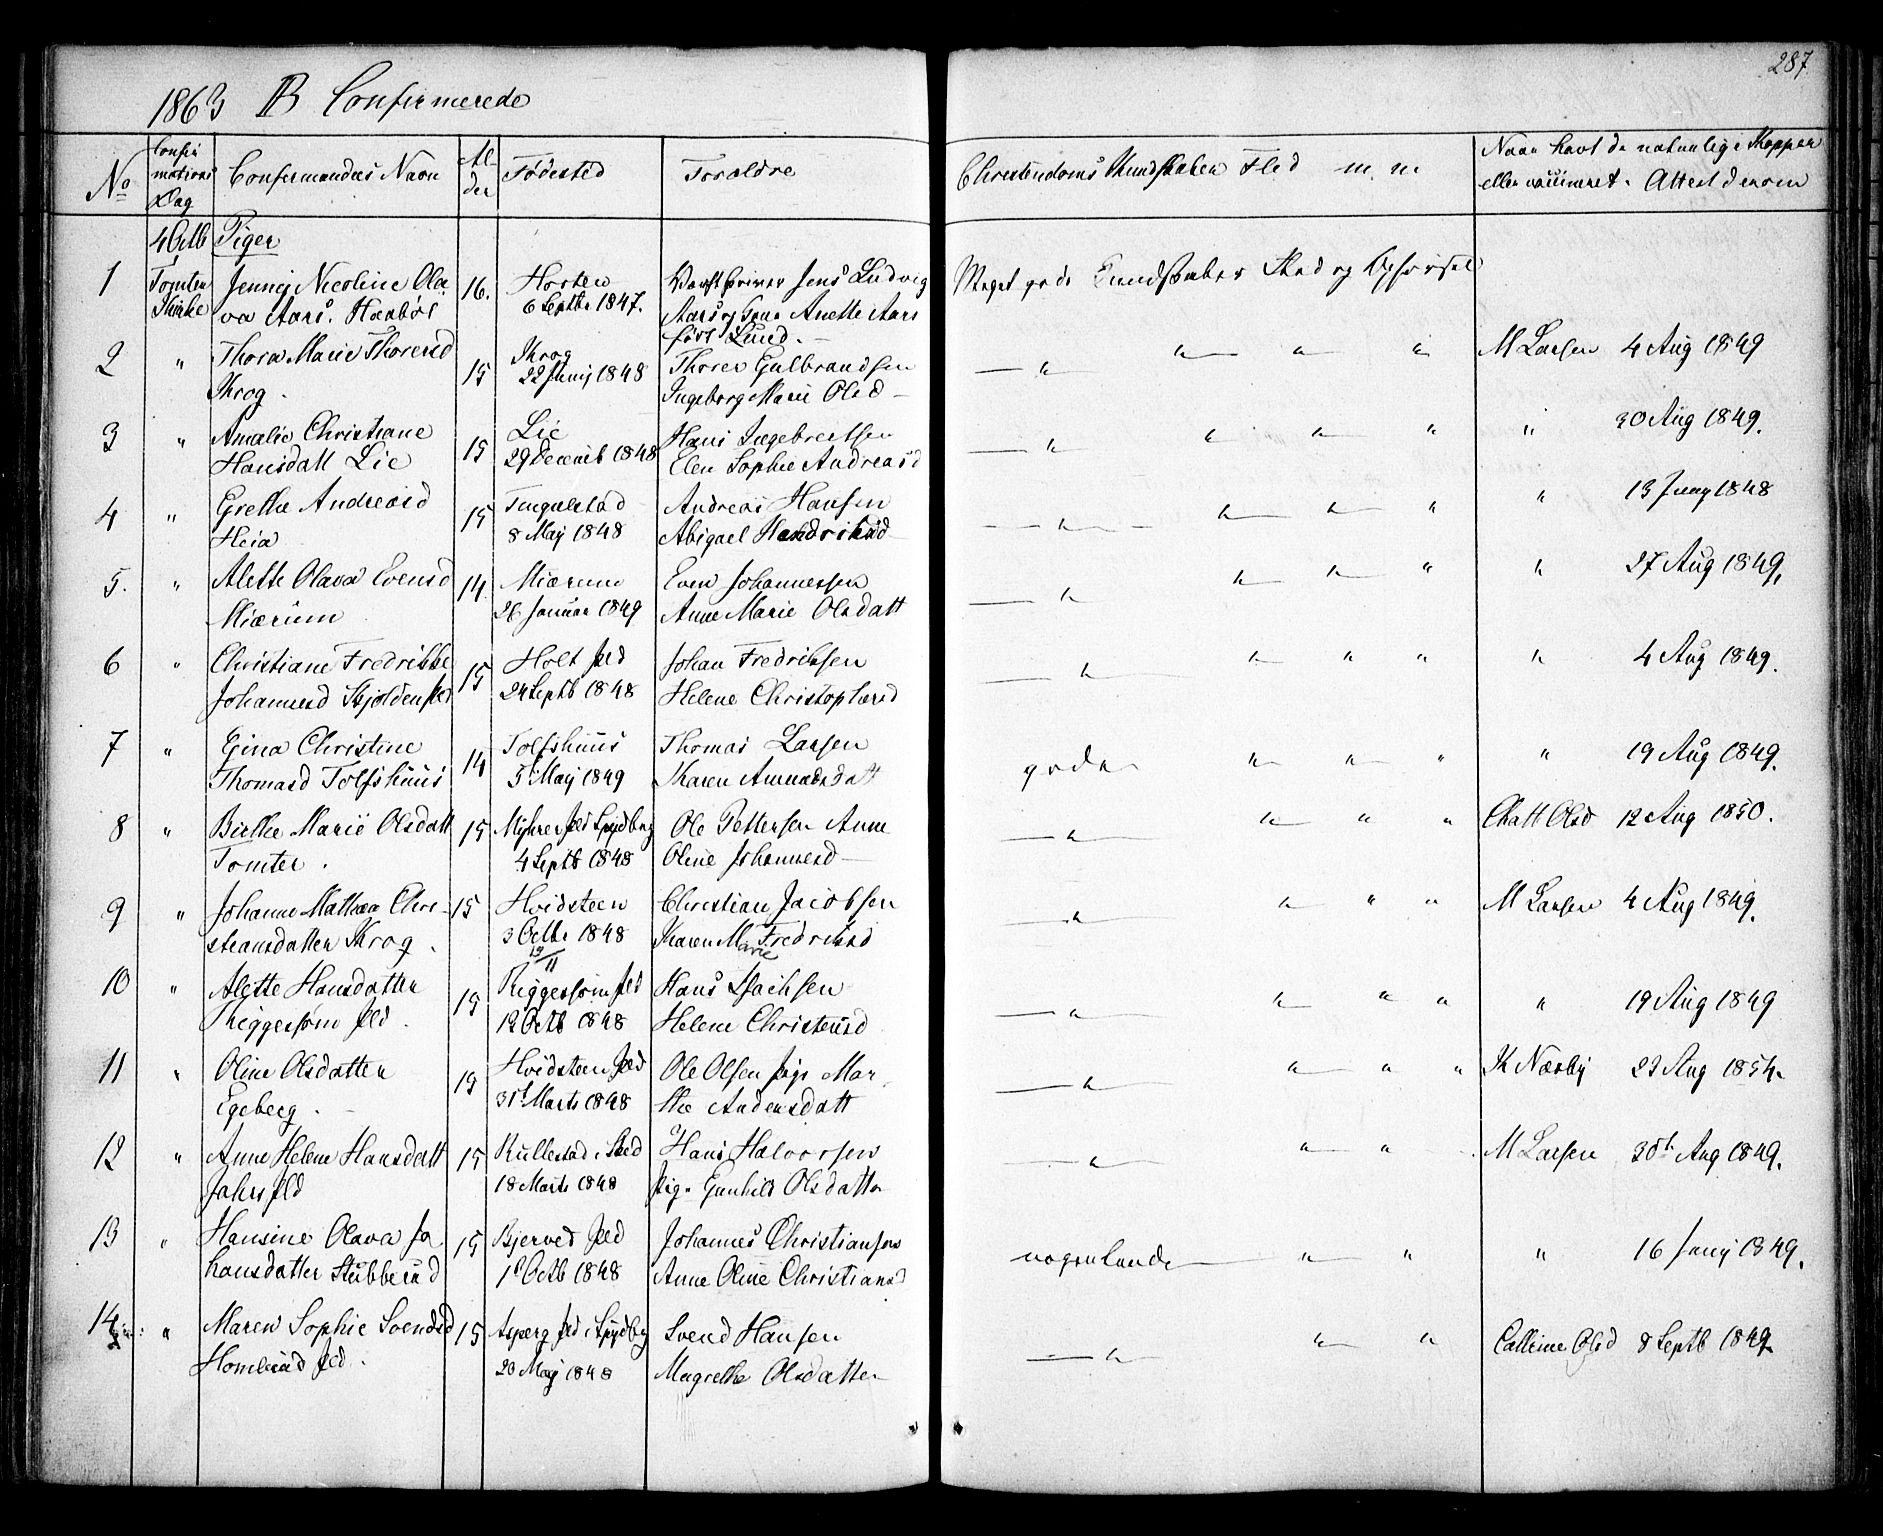 287
1863 B Confirmerede
No
Confir
mations
Dag
Confirmandens Navn
Al-
der
Fødested
Forældre
Christendoms Kundskaber Flid m. m
Naar havt de naturlige Kopper
eller vaccineret. Attest derom
4 Octb Piger
1 Tomter Jenny Nicoline Ola 16. Horten
Kirke va Aars. Haabøl 6 Septbr 1847.
Jens Ludvig
Aars og Anette Aars
født Lund.
Meget gode Kundskaber Flid og Opførsel
2 " Thora Marie Thoresd 15 Krog Thorer Gulbrandsen
Krog. 22 Junij 1848 Ingeborg Marie Olsd
— " — " — " " M Larsen 4 Aug 1849
3 " Amalie Christiane 15 Lie Hans Ingebretsen
Hansdatt Lie 29 Decemb 1848 Elen Sophie Andreasd
— " — " — " " " 30 Aug 1849.
4 " Grethe Andreasd 15 Tingulstad Andreas Hansen
Heia 8 Maj 1848 Abigael Hendriksd
— " — " — " " " 13 Juny 1848
5. " Alette Olava Evensd 14. Miærum Even Johannessen
Miærum 26 Januar 1849 Anne Marie Olsdatt
— " — " — " " " 27 Aug 1849.
6 " Christiane Fredrikke 15 Holt Johan Fredriksen
Johannesd 24 Septb 1848 Helene Christophersd
— " — " — " " " 4 Aug 1849.
7 " Gina Christine 14 Tolfshuus Thomas Larsen
Thomasd Tolfshuus 5 Maij 1849 Karen Amundsdatt
gode " " " " 19 Aug 1849.
8 " Birthe Marie Olsdatt 15 Myhrer Spydbrg Ole Pettersen Anne
Tomter. 4 Septb 1848 Oline Johannesd
— " — " " " Chatt Olsd 12 Aug 1850.
9 " Johanne Mathea Chri- 15 Hvidsteen Christian Jacobsen
stiansdatter Krog. 3 Octbr 1848 Karen Marie Fredriksd
— " — " " " M Larsen 4 Aug 1849.
10 " Alette Hansdatter 15 Hans Isachsen
12 Octb 1848 Helene Christensd
— " — " " " " 19 Aug 1849
11 " Oline Olsdatter 15 Hvidsteen Ole Olsen Pige Mar
Egeberg. 31t Marts 1848 the Andersdatt
— " — " " " K Næsby 23 Aug 1854.
12 " Anne Helene Hansdatt 15 Kullestad i Hans Halvorsen
18 Marts 1848 Pige Gunhild Olsdatter
— " — " " M Larsen 30t Aug 1849.
13 " Hansine Olava Jo 15 Bjerved Johannes Christiansen
hansdatter Stubberud 1t Octb 1848 Anne Oline Christiansd
nogenlunde " " " 16 Juny 1849.
14 " Maren Sophie Svendsd 15 Asperg i Spydbrg Svend Hansen
Homlerud 20 Maj 1848 Magrethe Olsdatter
— " — " " Cathrine Olsd 8 Septb 1849